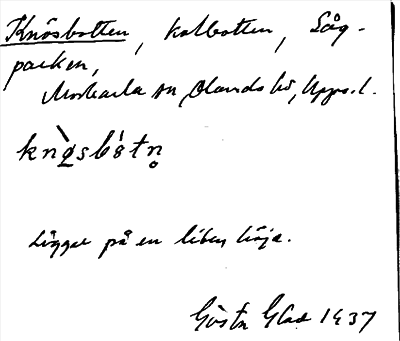 Knösbotten, kolbotten, Såg-
parken,
Morkarla sn, Olands hd, Upps. l.
knò̤sbótn̥
Ligger på en liten höjd.
Gösta Glad 1937